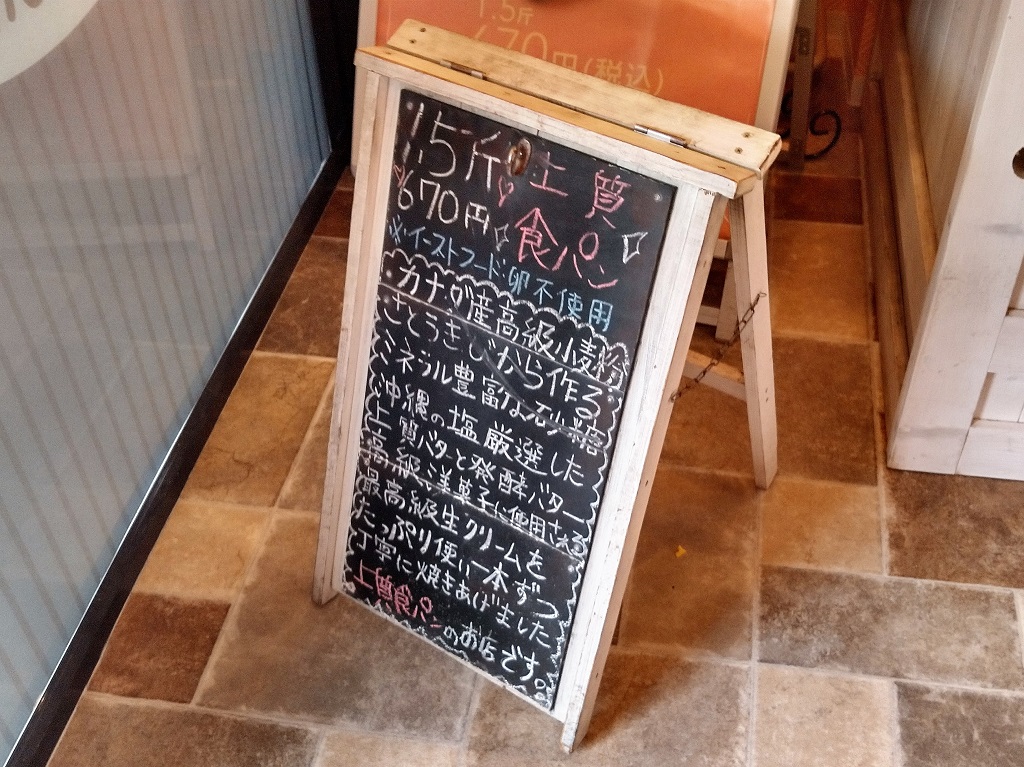 1.5斤
670円(税込)
1.5斤 上質
670円 食パン
※イーストフード・卵不使用
カナダ産高級小麦粉
さとうきびから作る
ミネラル豊富な砂糖
沖縄の塩厳選した
上質バターと発酵バター
高級洋菓子に使用される
最高級生クリームを
たっぷり使い一本ずつ
丁寧に焼きあげました
上質食パンのお店です。